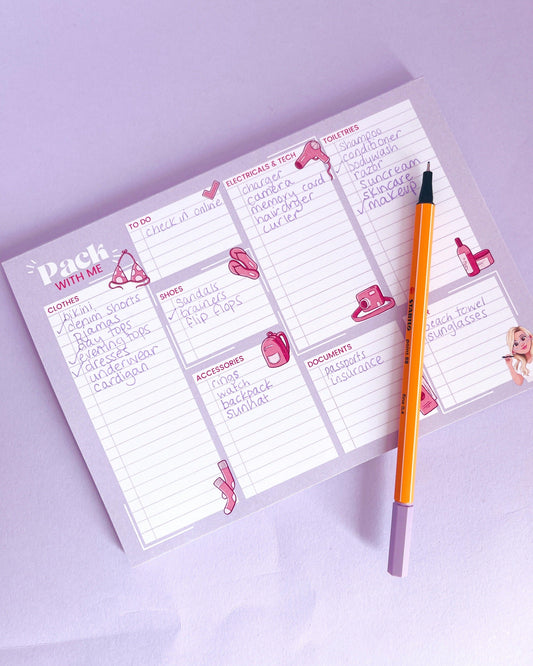 Pack
WITH ME
CLOTHES
bikini
denim shorts
PJamas
day tops
✓evening tops
✓dresses
underwear
cardigan
TO DO
check in online
SHOES
✓Sandals
trainers
flip flops
ACCESSORIES
rings
watch
backpack
sunhat
ELECTRICALS & TECH
charger
camera
memory card
hairdryer
curler
DOCUMENTS
passports
insurance
TOILETRIES
shampoo
✓conditioner
✓bodywash
razor
suncream
✓skincare
✓makeup
beach towel
sunglasses
STABILO
point 88